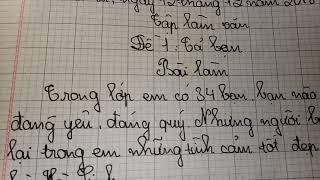 ngày 12 tháng 12 năm
Tập làm văn
Đề 1: Tả bạn
Bài làm
Trong lớp em có 34 bạn bạn nào
đang yêu, đáng quý Nhưng người
lại trong em những tình cảm tốt đẹp